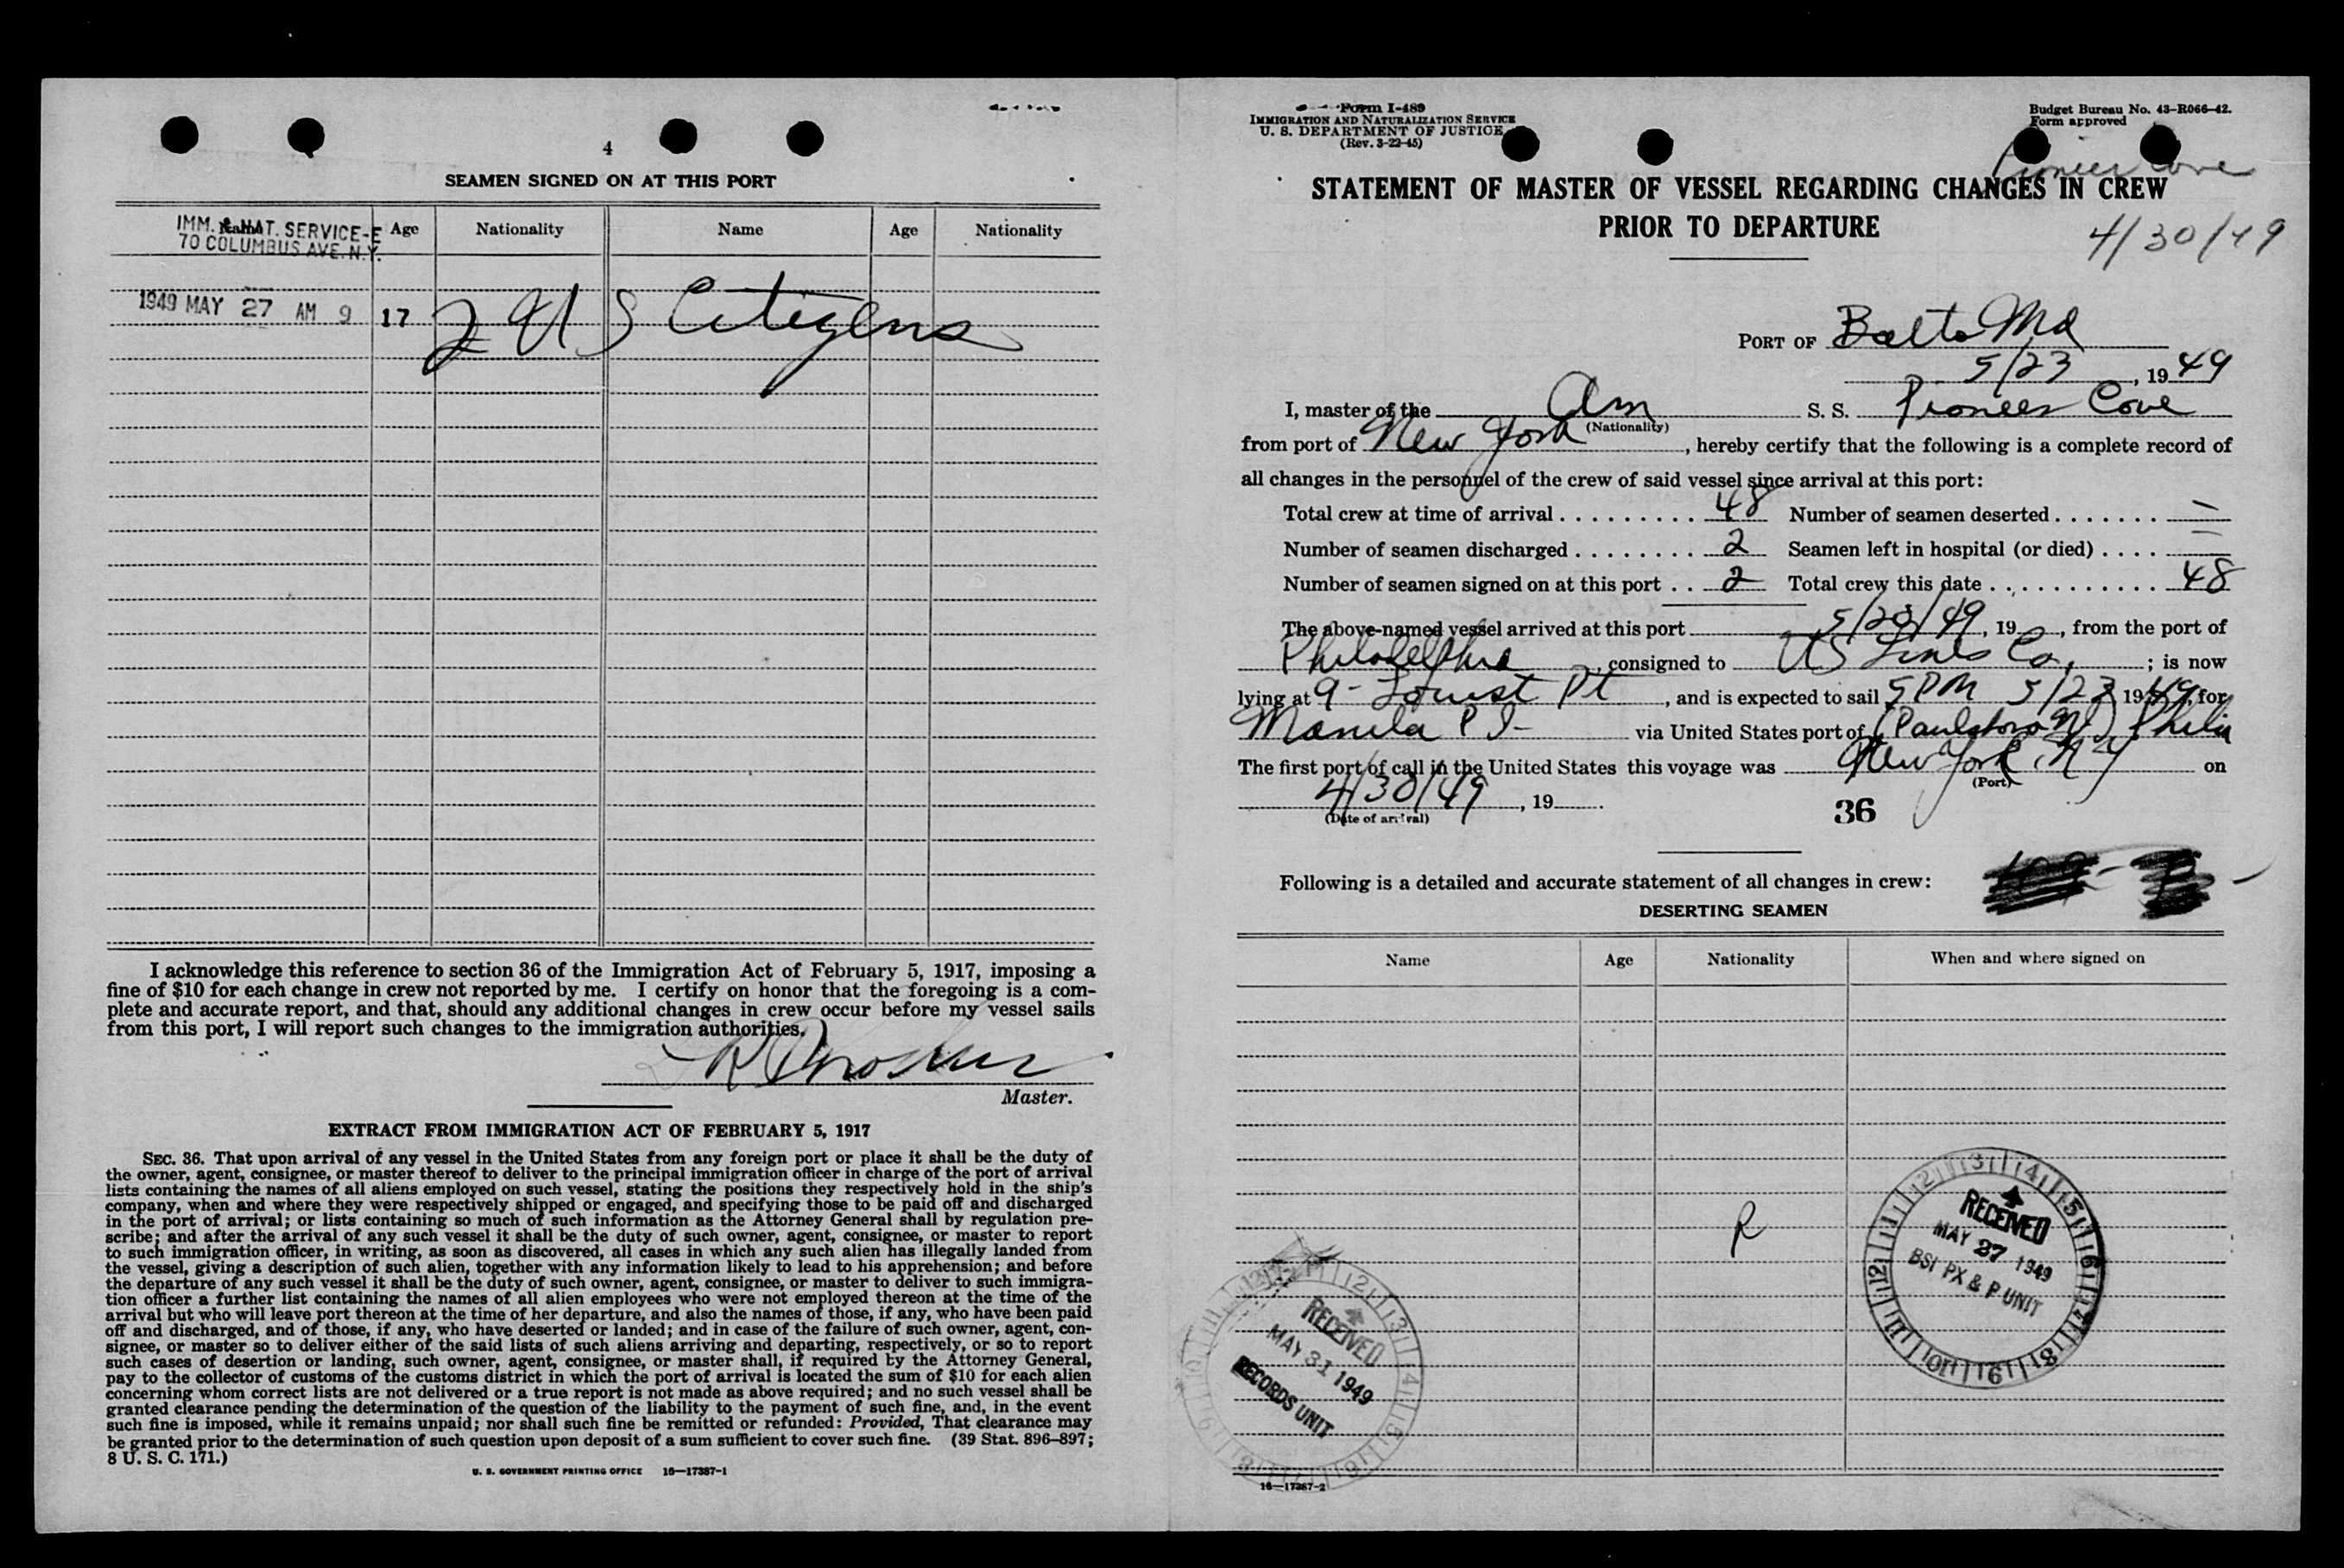 4
SEAMEN SIGNED ON AT THIS PORT
Name Age Nationality Name Age Nationality
IMM. & NAT. SERVICE-E
70 COLUMBUS AVE. N.Y.
1949 MAY 27 AM 9 17
2 US Citizens
I acknowledge this reference to section 36 of the Immigration Act of February 5, 1917, imposing a
fine of $10 for each change in crew not reported by me. I certify on honor that the foregoing is a com-
plete and accurate report, and that, should any additional changes in crew occur before my vessel sails
from this port, I will report such changes to the immigration authorities.
Master.
EXTRACT FROM IMMIGRATION ACT OF FEBRUARY 5, 1917
SEC. 36. That upon arrival of any vessel in the United States from any foreign port or place it shall be the duty of
the owner, agent, consignee, or master thereof to deliver to the principal immigration officer in charge of the port of arrival
lists containing the names of all aliens employed on such vessel, stating the positions they respectively hold in the ship's
company, when and where they were respectively shipped or engaged, and specifying those to be paid off and discharged
in the port of arrival; or lists containing so much of such information as the Attorney General shall by regulation pre-
scribe; and after the arrival of any such vessel it shall be the duty of such owner, agent, consignee, or master to report
to such immigration officer, in writing, as soon as discovered, all cases in which any such alien has illegally landed from
the vessel, giving a description of such alien, together with any information likely to lead to his apprehension; and before
the departure of any such vessel it shall be the duty of such owner, agent, consignee, or master to deliver to such immigra-
tion officer a further list containing the names of all alien employees who were not employed thereon at the time of the
arrival but who will leave port thereon at the time of her departure, and also the names of those, if any, who have been paid
off and discharged, and of those, if any, who have deserted or landed; and in case of the failure of such owner, agent, con-
signee, or master so to deliver either of the said lists of such aliens arriving and departing, respectively, or so to report
such cases of desertion or landing, such owner, agent, consignee, or master shall, if required by the Attorney General,
pay to the collector of customs of the customs district in which the port of arrival is located the sum of $10 for each alien
concerning whom correct lists are not delivered or a true report is not made as above required; and no such vessel shall be
granted clearance pending the determination of the question of the liability to the payment of such fine, and, in the event
such fine is imposed, while it remains unpaid; nor shall such fine be remitted or refunded: Provided, That clearance may
be granted prior to the determination of such question upon deposit of a sum sufficient to cover such fine. (39 Stat. 896–897;
8 U. S. C. 171.)
U. S. GOVERNMENT PRINTING OFFICE 16—17387-1
Form I-489
IMMIGRATION AND NATURALIZATION SERVICE
U. S. DEPARTMENT OF JUSTICE
(Rev. 3-22-45)
Budget Bureau No. 43-R066-42.
Form approved
Pioneer Cove
STATEMENT OF MASTER OF VESSEL REGARDING CHANGES IN CREW
PRIOR TO DEPARTURE
4/30/49
PORT OF Balto Md
5/23, 19 49
I, master of the Am S. S. Pioneer Cove
(Nationality)
from port of New York, hereby certify that the following is a complete record of
all changes in the personnel of the crew of said vessel since arrival at this port:
Total crew at time of arrival . . . . . . . . . 48 Number of seamen deserted . . . . . . . —
Number of seamen discharged . . . . . . . . 2 Seamen left in hospital (or died) . . . . —
Number of seamen signed on at this port . . 2 Total crew this date . . . . . . . . . . . 48
The above-named vessel arrived at this port 5/20/49, 19 , from the port of
Philadelphia, consigned to US Lines Co, ; is now
lying at 9- Locust Pt, and is expected to sail 5 PM 5/23 19 49, for
Manila P I- via United States port of (Paulsboro NJ) Phila
The first port of call in the United States this voyage was New York, N Y on
(Port)
4/30/49, 19 .
(Date of arrival)
36
Following is a detailed and accurate statement of all changes in crew:
DESERTING SEAMEN
Name Age Nationality When and where signed on
R
RECEIVED
MAY 27 1949
BSI PX & P UNIT
RECEIVED
MAY 31 1949
RECORDS UNIT
16—17387-2